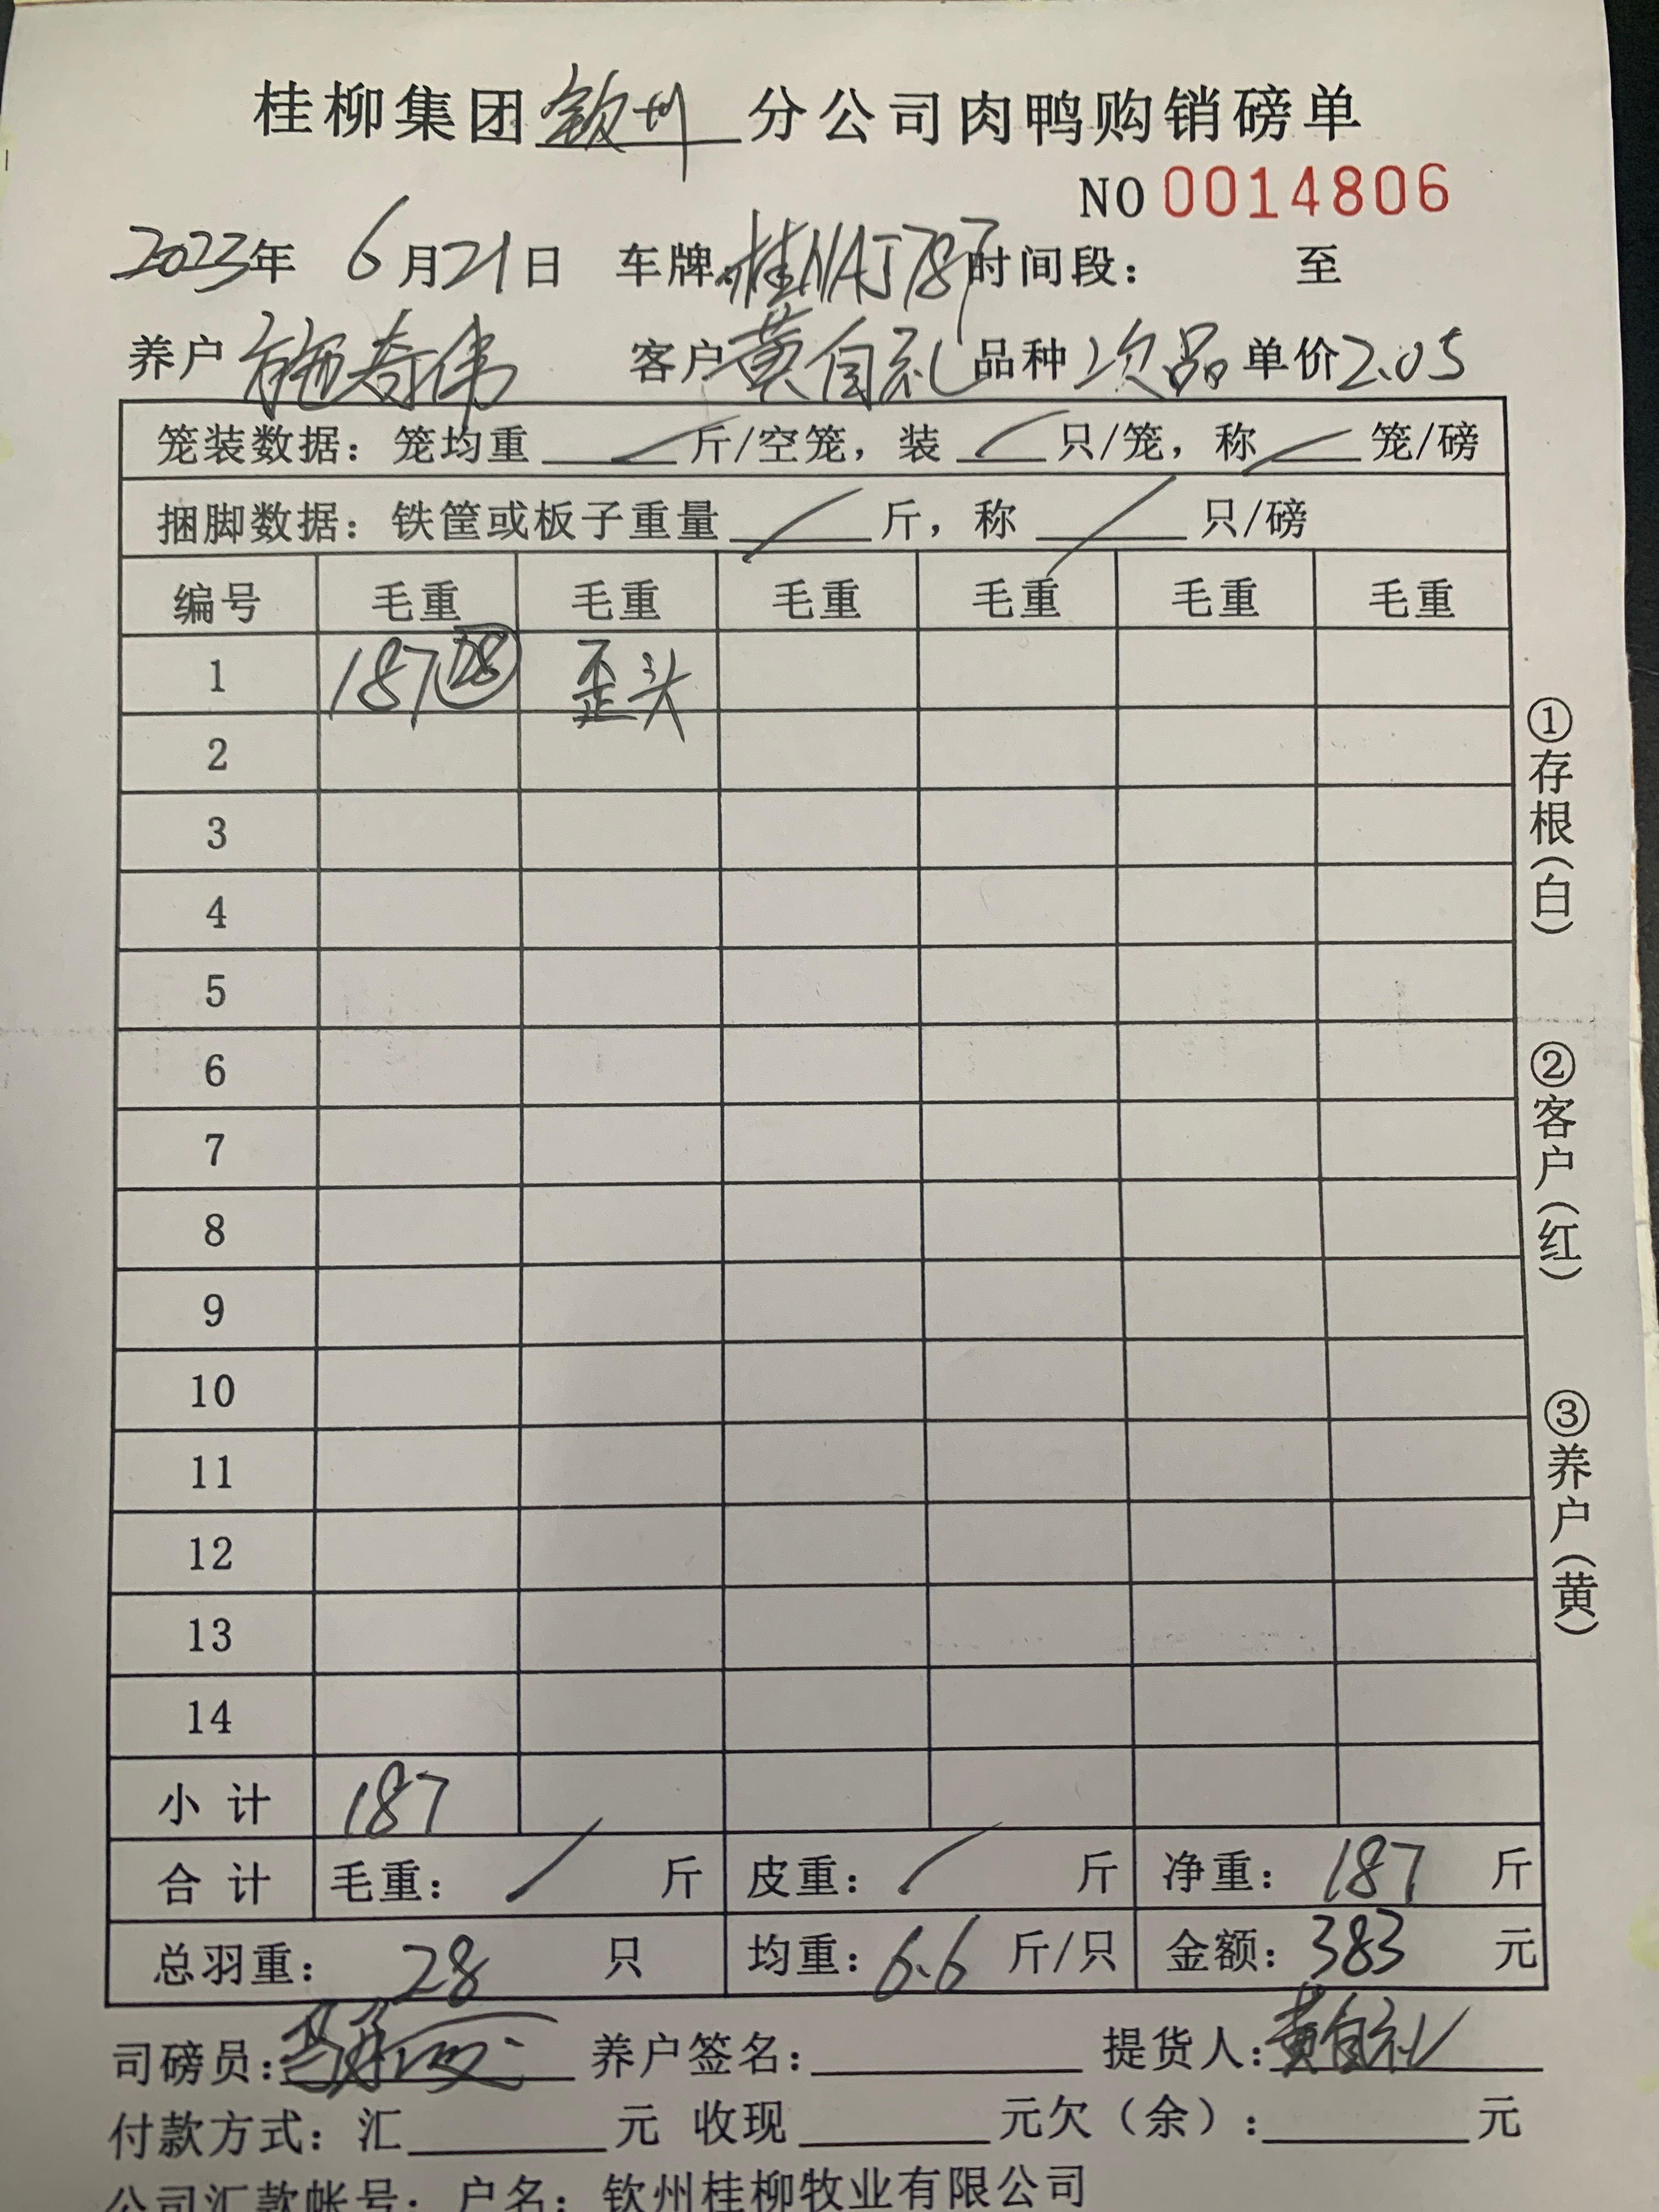 桂柳集团钦州分公司肉鸭购销磅单
NO 0014806
2023年 6月21日 车牌:桂NAJ787时间段: 至
养户 施寿伟 客户黄自礼 品种 次品 单价2.05
笼装数据: 笼均重 / 斤/空笼, 装 / 只/笼, 称 / 笼/磅
捆脚数据: 铁筐或板子重量 / 斤, 称 / 只/磅
编号 毛重 毛重 毛重 毛重 毛重 毛重
1 187 28 歪头
2
3
4
5
6
7
8
9
10
11
12
13
14
小计 187
合计 毛重: / 斤 皮重: / 斤 净重: 187 斤
总羽重: 28 只 均重: 6.6 斤/只 金额: 383 元
司磅员: 养户签名: 提货人: 黄自礼
付款方式: 汇 元 收现 元欠(余): 元
公司汇款帐号: 户名: 钦州桂柳牧业有限公司
①存根(白)
②客户(红)
③养户(黄)